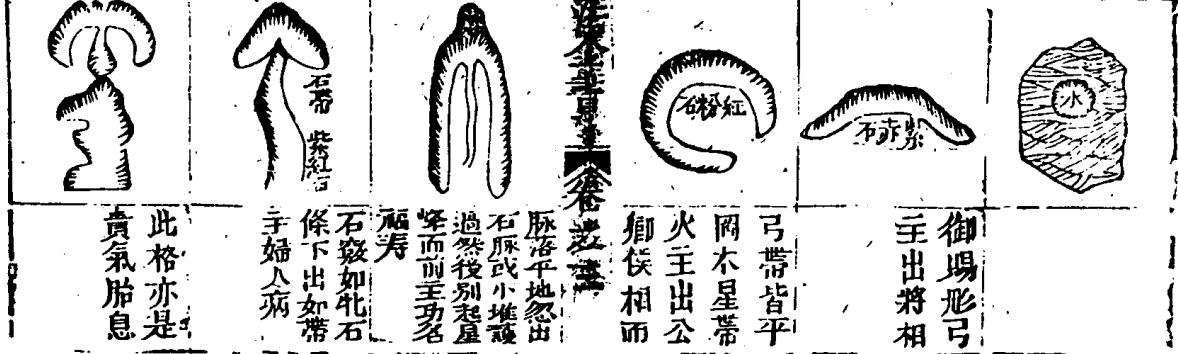 水
紫赤石
御賜形弓
主出將相
紅粉石
弓帶皆平
岡木星帶
火主出公
卿侯相而
脉落平地忽出
石脉或小堆護
過然後別起星
峰而前主功名
福壽
石帶
紫紅石
石竅如牝石
條下出如帶
主婦人病
此格亦是
貴氣胎息